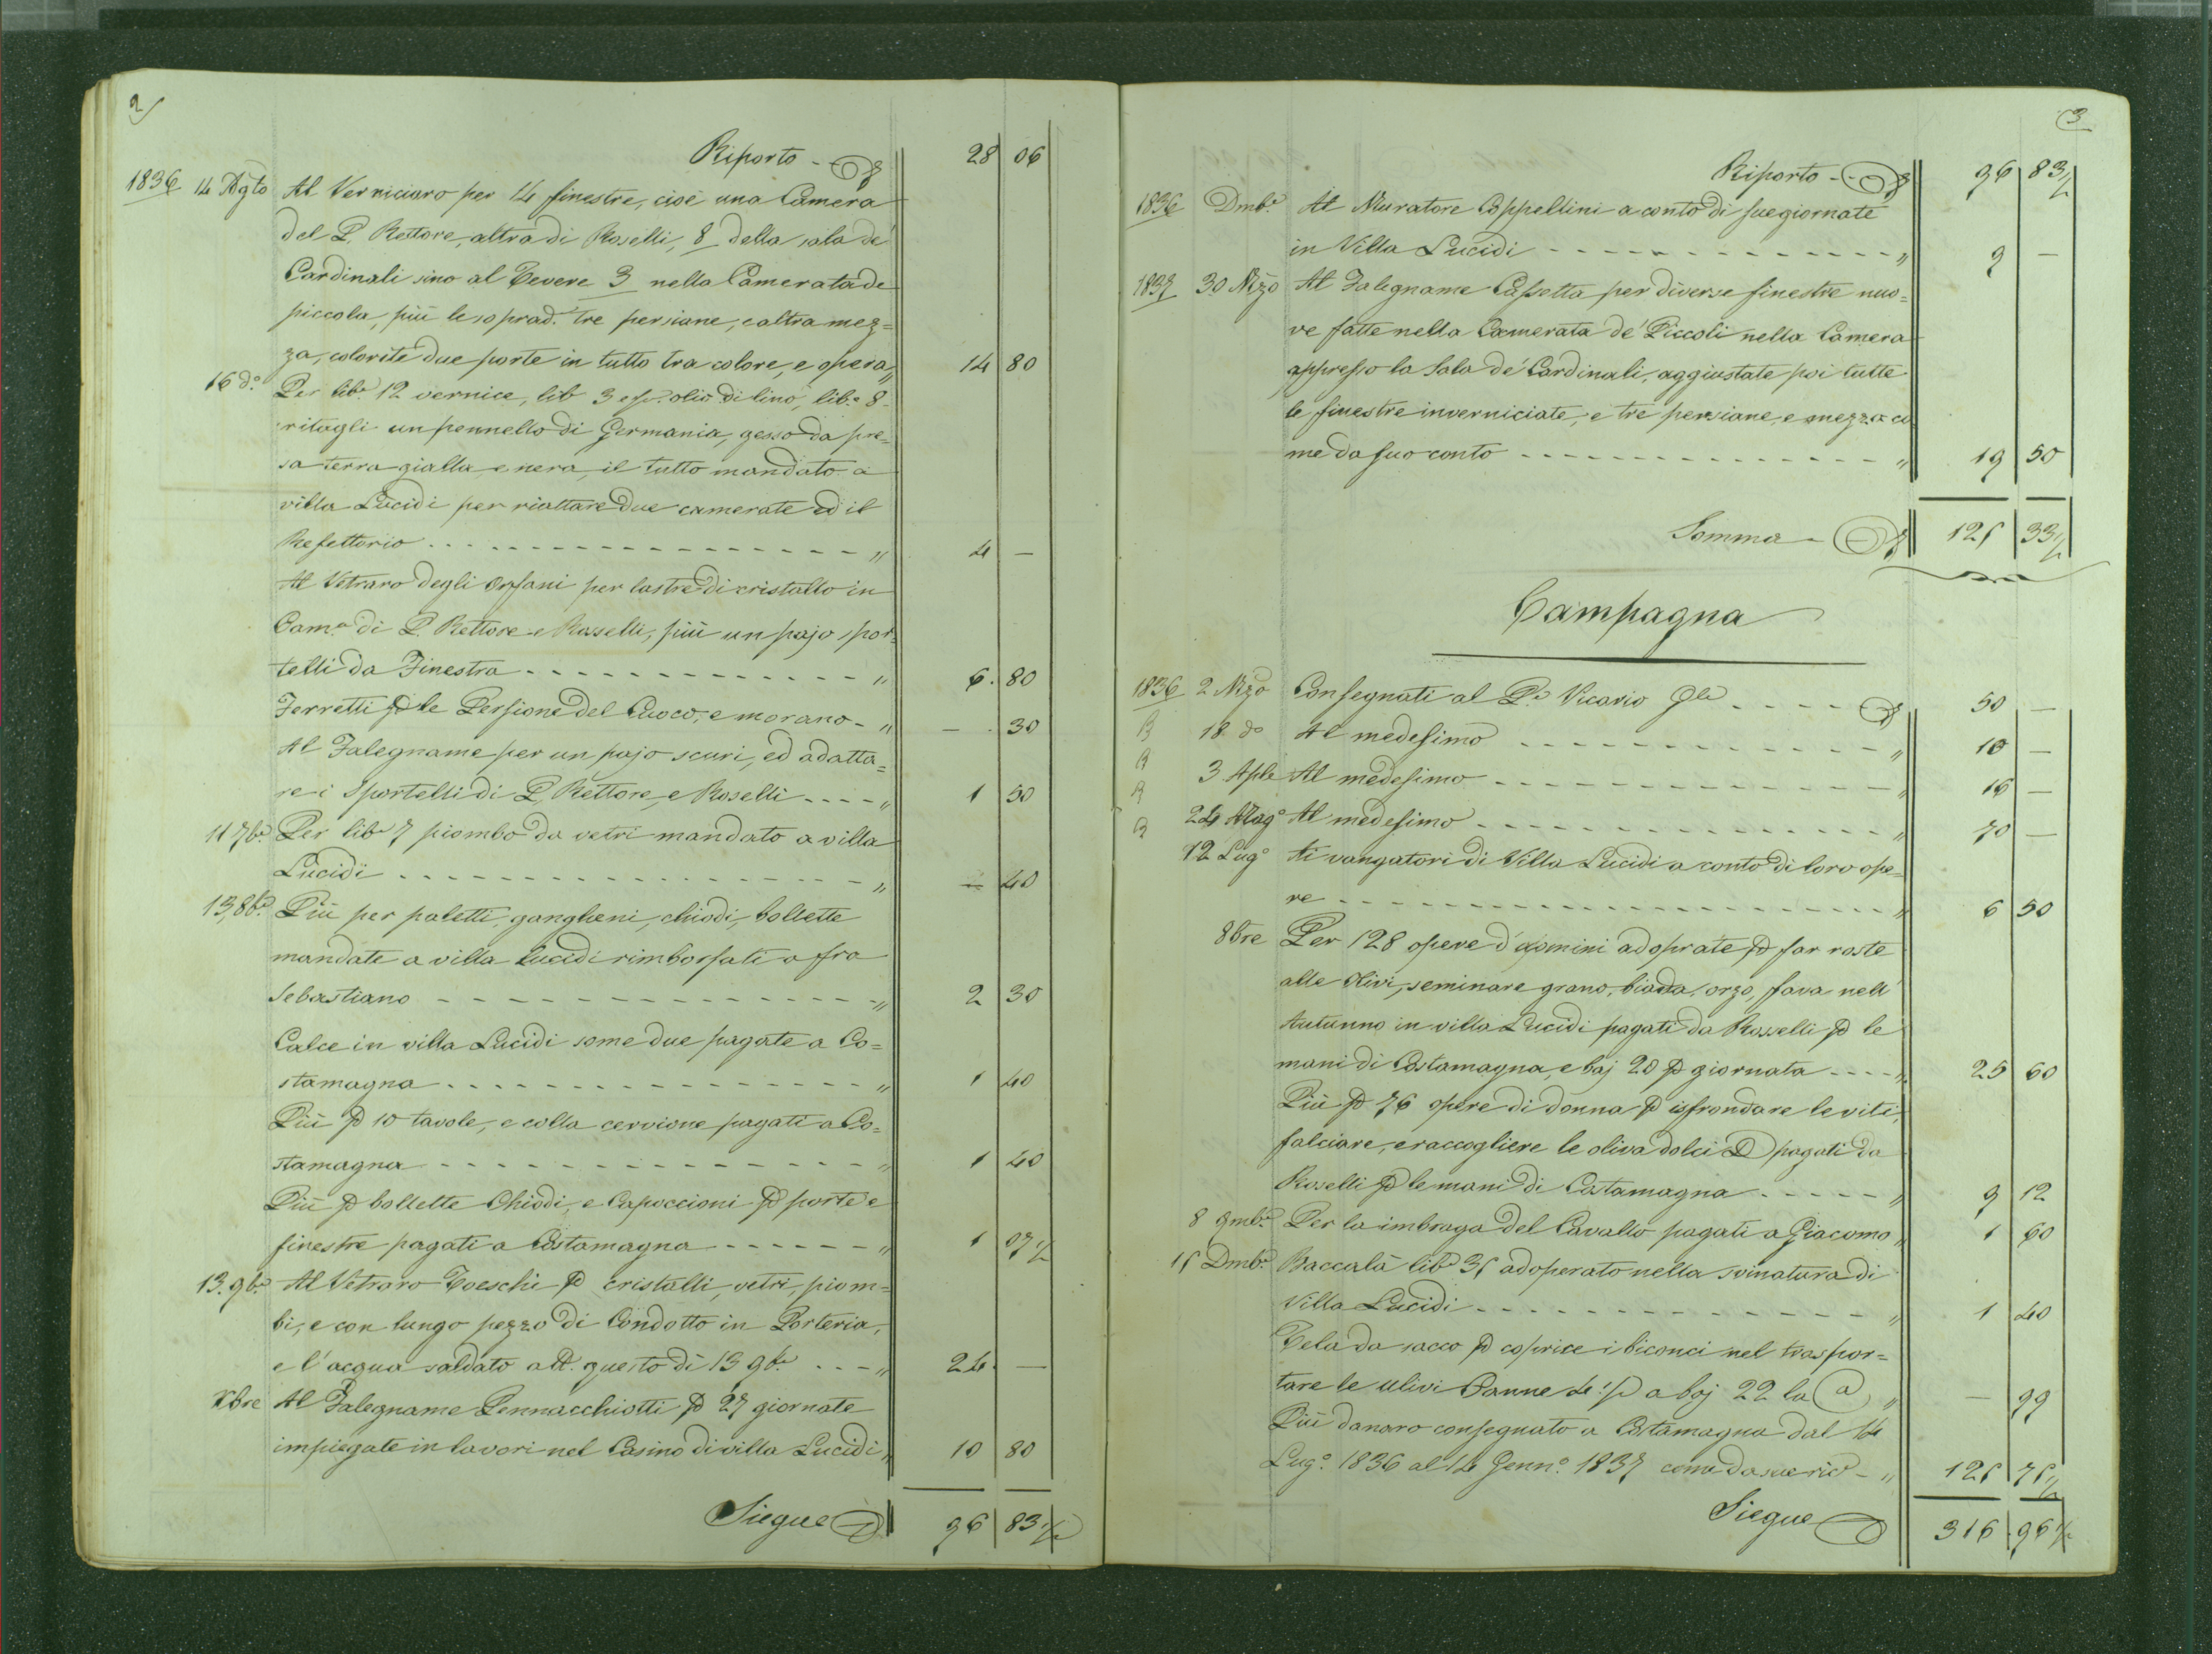 2
Riporto - 28 06
1836 14 Agto Al Verniciaro per 14 finestre, cioè una Camera
del P. Rettore, altra di Roselli, 8 della sala de'
Cardinali sino al Tevere 3 nella Camerata de
piccola, più le soprad. tre persiane, e altra mez=
za, colorite due porte in tutto tra colore, e opera " 14 80
16 do. Per libe 12 vernice, lib 3 e olio di lino, libe 8
ritagli un pennello di Germania, gesso da pre=
sa terra gialla e nera, il tutto mandato a
villa Lucidi per riattare due camerate ed il
Refettorio " 4 —
Al Vetraro degli Orfani per lastre di cristallo in
Cama di P. Rettore e Rosselli, più un pajo spor=
telli da Finestra " 6. 80
Ferretti p le Persione del Cuoco, e morano - " — . 30
Al Falegname per un pajo scuri, ed adatta=
re i Sportelli di P. Rettore, e Roselli " 1 50
11 7be Per libe 7 piombo da vetri mandato a villa
Lucidi " — 40
13, 8be Più per paletti, gangheni, chiodi, bollette
mandate a villa Lucidi rimborsati a fra
Sebastiano " 2 30
Calce in villa Lucidi some due pagate a Co=
stamagna " 1 40
Più p 10 tavole, e colla cervione pagati a Co=
stamagna " 1 40
Più p bollette Chiodi, e Capoccioni p porte e
finestre pagati a Costamagna " 1 07 1/2
13. 9be Al Vetraro Toeschi p cristalli, vetri, piom=
bi, e con lungo pezzo di Condotto in Porteria,
e l'acqua saldato a questo di 13 9be " 24. —
Xbre Al Falegname Pennacchiotti p 27 giornate
impiegate in lavori nel Casino di villa Lucidi " 10 80
Siegue 96 83 1/2
3
Riporto - 96 83 1/2
1836 Dmbe Al Muratore Coppellini a conto di sue giornate
in Villa Lucidi " 9 —
1837 30 Mzo Al Falegname Cassetta per diverse finestre nuo=
ve fatte nella Camerata de' Piccoli nella Camera
appresso la Sala de' Cardinali, aggiustate poi tutte
le finestre inverniciate, e tre persiane, e mezza co
me da suo conto " 19 50
Somma - 125 33 1/2
Campagna
1836 2 Mzo Consegnati al Pe Vicario Gle 50 —
18 do Al medesimo " 10 —
3 Aple Al medesimo " 16 —
24 Mago Al medesimo " 70 —
12 Lugo Ai vangatori di Villa Lucidi a conto di loro ope=
re " 6 50
8bre Per 128 opere d'uomini adoprate p far roste
alle Olivi, seminare grano, biada, orzo, fava nell'
Autunno in villa Lucidi pagati da Rosselli p le
mani di Costamagna, e baj 20 p giornata " 25 60
Più p 76 opere di donna p isfrondare le viti,
falciare, e raccogliere le oliva dolci pagati da
Roselli p le mani di Costamagna " 9 12
8 9mbe Per la imbraga del Cavallo pagati a Giacomo " 1 60
15 Dmbe Baccalà libe 35 adoperato nella svinatura di
Villa Lucidi " 1 40
Tela da sacco p coprire i biconci nel traspor=
tare le ulivi Canne 4 1/2 a baj 22 la " — 99
Più danaro consegnato a Costamagna dal 14
Lugo. 1836 al 14 Genno. 1837 come da sue ric - " 125 75 1/2
Siegue 316 96 1/2